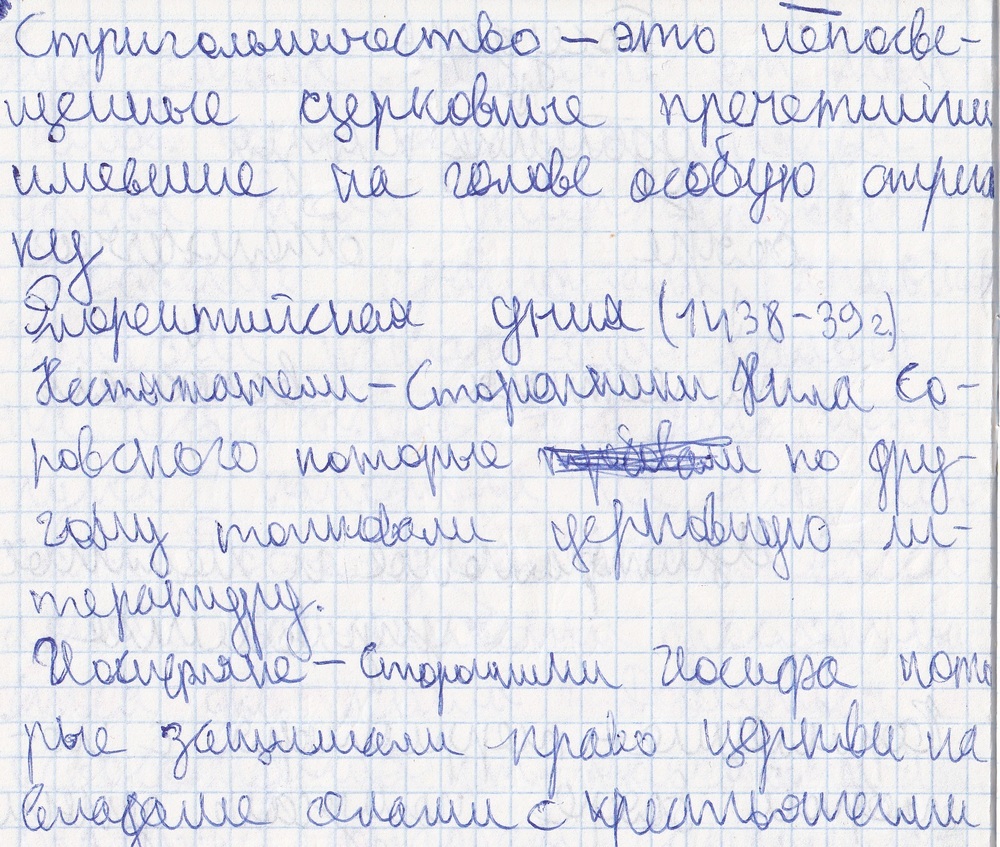 Стригольничество – это непосве-
щенные церковные пречетники
имевшие на голове особую стриж
ку
Флорентийская уния (1438-39г.)
Нестяжатели – Сторонники Нила Со-
ровского которые по дру-
гому толковали церковную ли-
тературу.
Иосифляне – Сторонники Иосифа кото
рые защищали право церкви на
владание селами с крестьянами